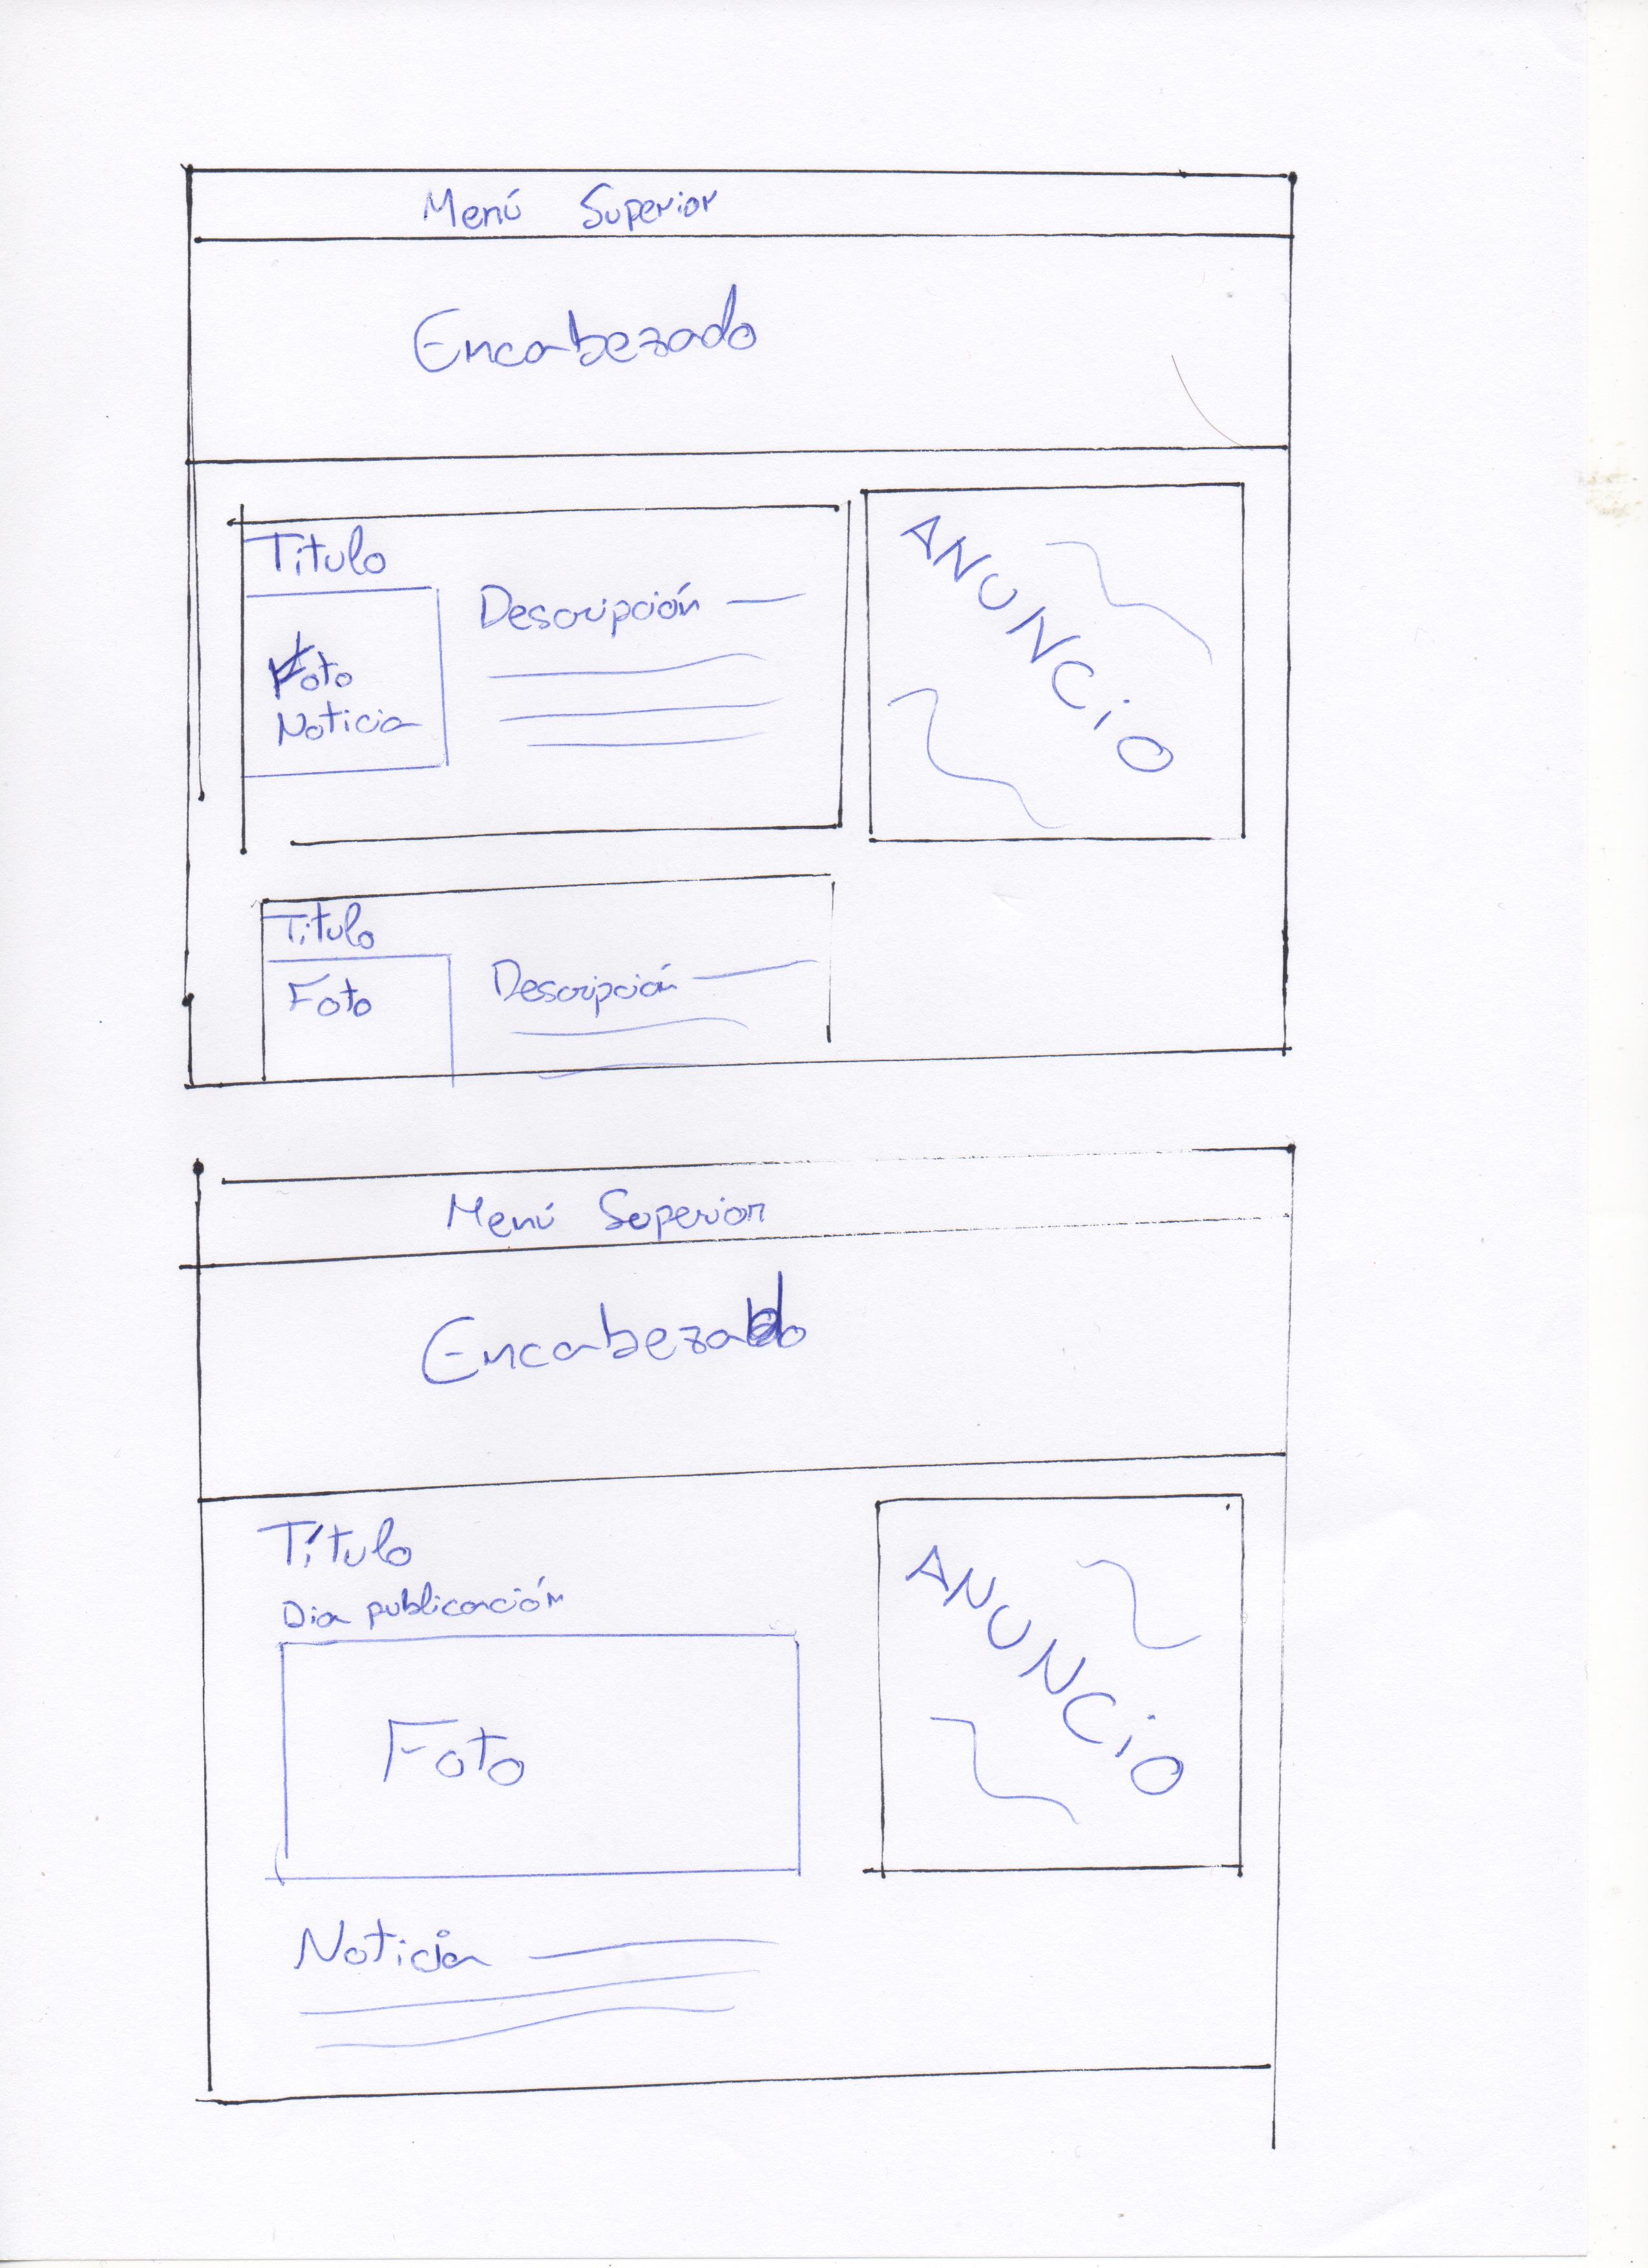 Menú Superior
Encabezado
Titulo
Foto
Noticia
Descripción
ANUNCiO
Titulo
Foto
Descripción
Menú Superior
Encabezado
Título
Dia publicación
Foto
Noticia
ANUNCiO